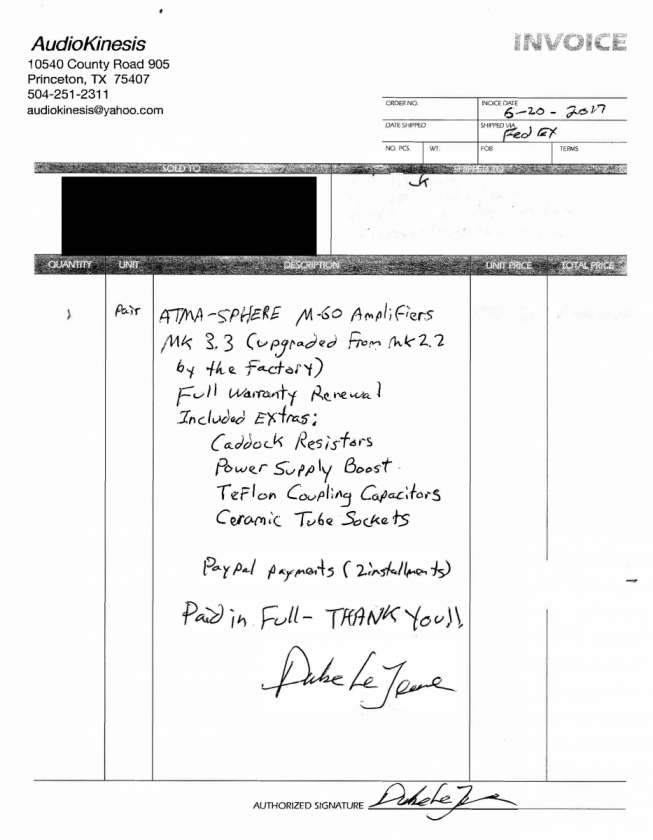 AudioKinesis
10540 County Road 905
Princeton, TX 75407
504-251-2311
audiokinesis@yahoo.com
INVOICE
ORDER NO.
INOICE DATE 6-20-2017
DATE SHIPPED
SHIPPED VIA Fed EX
NO. PCS.
WT.
FOB
TERMS
SOLD TO
SHIPPED TO
QUANTITY
UNIT
DESCRIPTION
UNIT PRICE
TOTAL PRICE
1
Pair
ATMA-SPHERE M-60 Amplifiers
MK 3.3 (upgraded from mk2.2
by the Factory)
Full Warranty Renewal
Included Extras;
Caddock Resistors
Power Supply Boost
Teflon Coupling Capacitors
Ceramic Tube Sockets
PayPal payments (2installments)
Paid in Full- THANK You!!
Duke LeJeune
AUTHORIZED SIGNATURE Duke LeJ